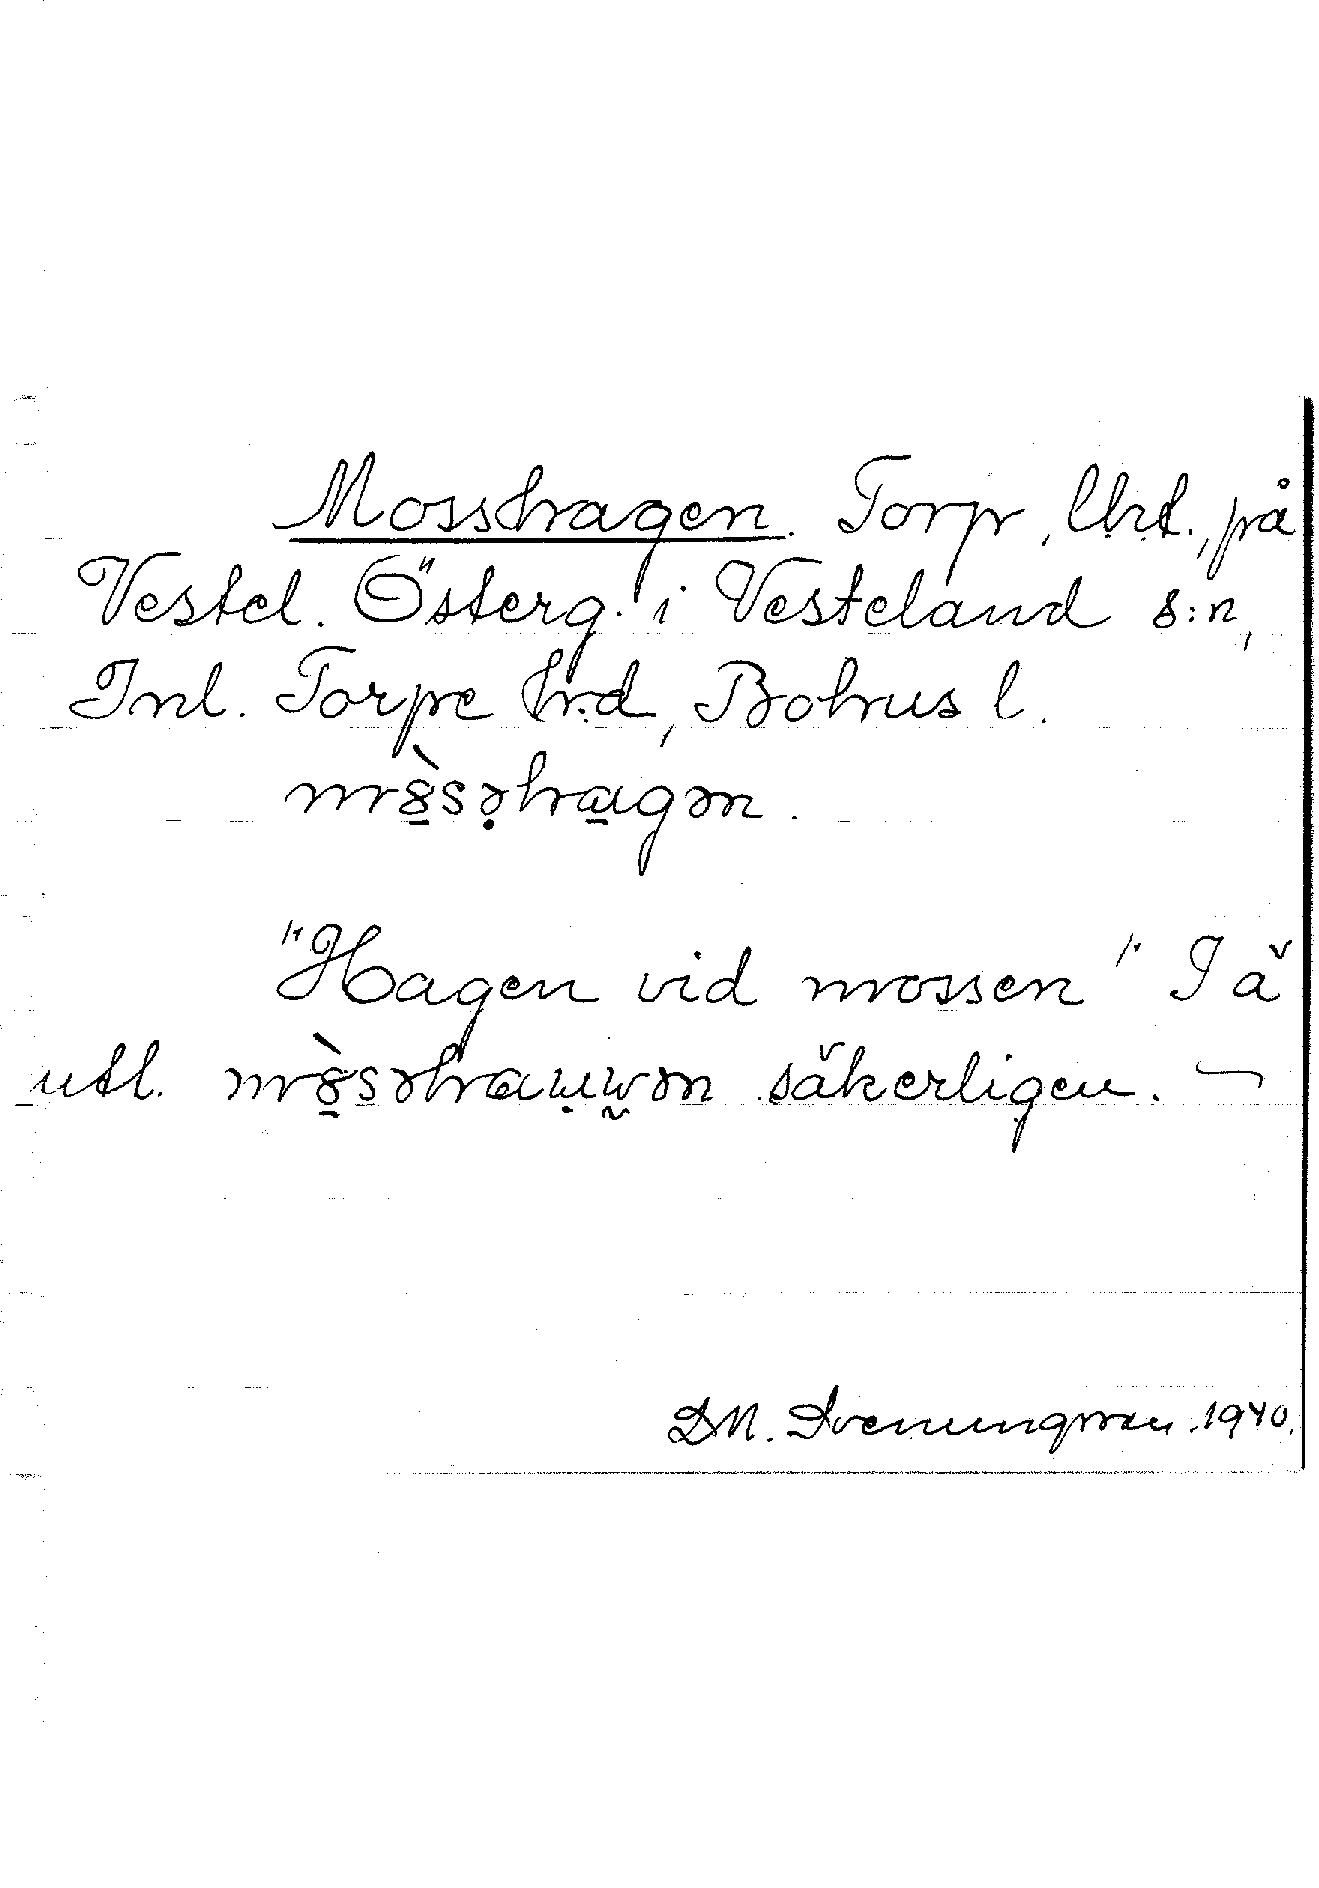 Mosshagen. Torp, lht., på
Vestel. Österg. i Vesteland s:n,
Inl. Torpe hrd, Bohus l.
mò̱səhagən.
"Hagen vid mossen" I ä
utl. mò̱səhauwən säkerligen. —
D.M. Svenungsson 1940.